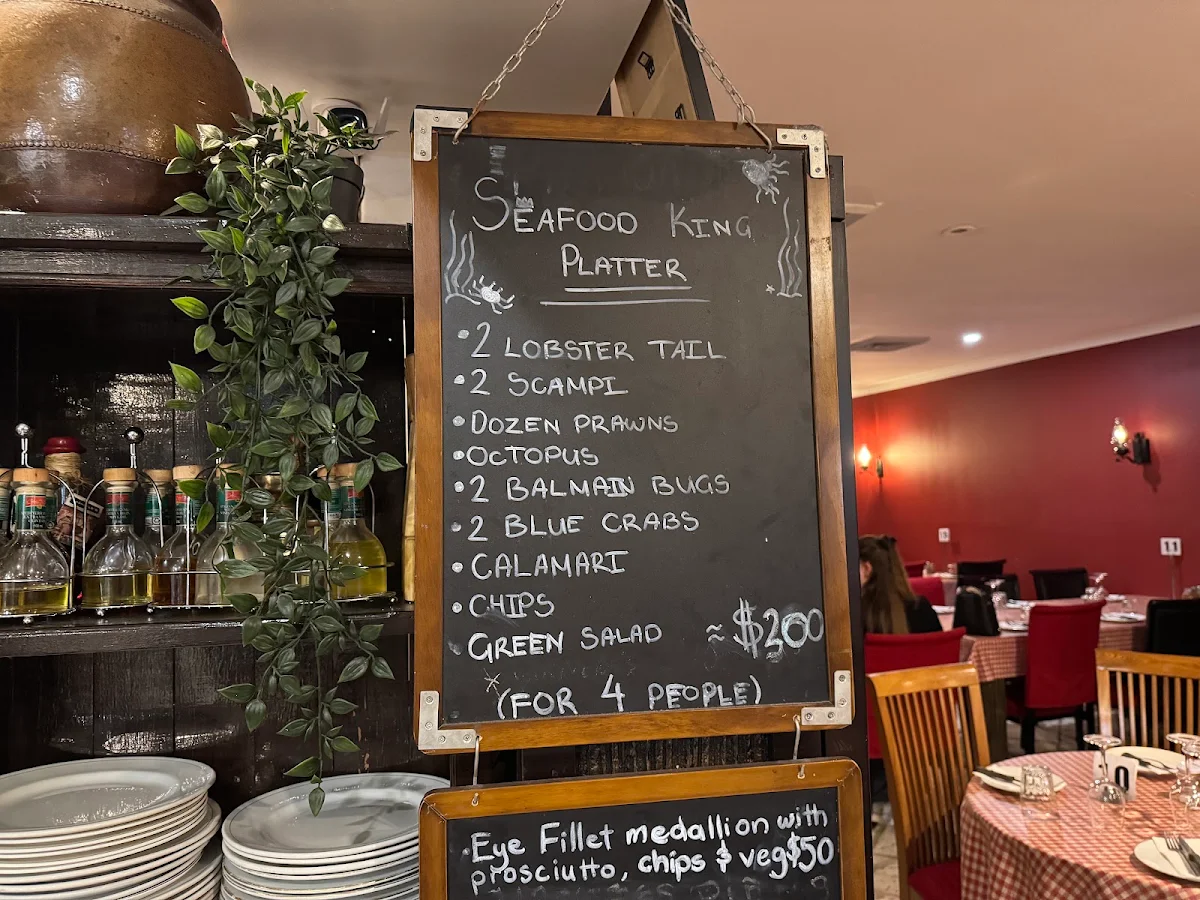 SEAFOOD KING
PLATTER
• 2 LOBSTER TAIL
• 2 SCAMPI
• DOZEN PRAWNS
• OCTOPUS
• 2 BALMAIN BUGS
• 2 BLUE CRABS
• CALAMARI
• CHIPS
GREEN SALAD ≈ $200
(FOR 4 PEOPLE)
Eye Fillet medallion with
prosciutto, chips & veg $50
11